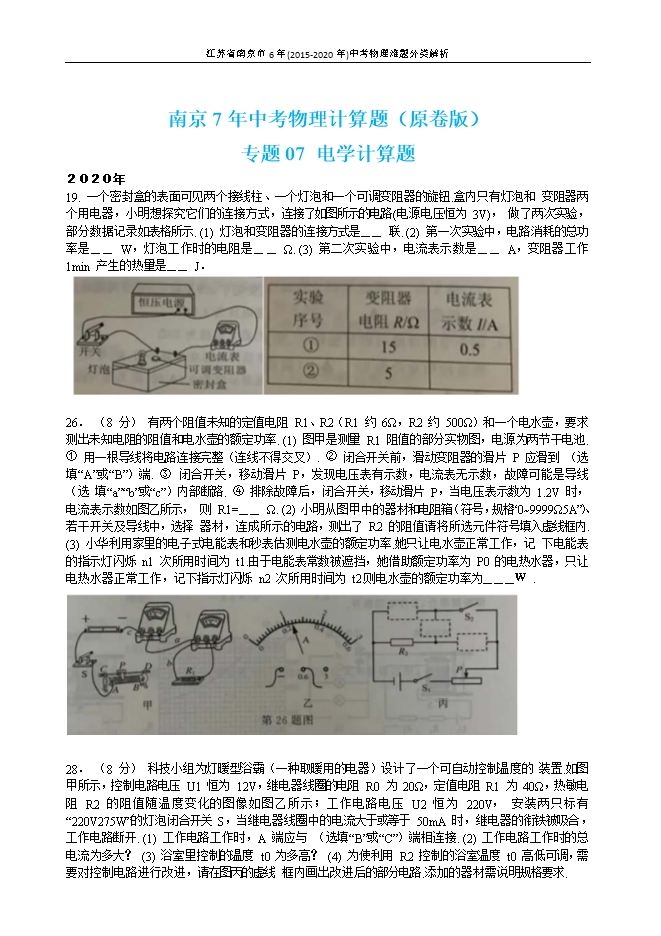 江苏省南京市 6 年(2015-2020 年)中考物理难题分类解析
南京 7 年中考物理计算题（原卷版）
专题 07 电学计算题
２０２０年
19. 一个密封盒的表面可见两个接线柱、一个灯泡和一个可调变阻器的旋钮.盒内只有灯泡和 变阻器两
个用电器，小明想探究它们的连接方式，连接了如图所示的电路(电源电压恒为 3V)， 做了两次实验，
部分数据记录如表格所示. (1) 灯泡和变阻器的连接方式是＿＿ 联. (2) 第一次实验中，电路消耗的总功
率是＿＿ W，灯泡工作时的电阻是＿＿ Ω. (3) 第二次实验中，电流表示数是＿＿ A，变阻器工作
1min 产生的热量是＿＿ J．
恒压电源
开关
灯泡
电流表
可调变阻器
密封盒
实验序号 变阻器电阻 R/Ω 电流表示数 I/A
① 15 0.5
② 5
26． （8 分） 有两个阻值未知的定值电阻 R1、R2（R1 约 6Ω，R2 约 500Ω）和一个电水壶，要求
测出未知电阻的阻值和电水壶的额定功率. (1) 图甲是测量 R1 阻值的部分实物图，电源为两节干电池.
① 用一根导线将电路连接完整（连线不得交叉）. ② 闭合开关前，滑动变阻器的滑片 P 应滑到 （选
填“A”或“B”）端. ③ 闭合开关，移动滑片 P，发现电压表有示数，电流表无示数，故障可能是导线
（选 填“a”“b”或“c”）内部断路. ④ 排除故障后，闭合开关，移动滑片 P，当电压表示数为 1.2V 时，
电流表示数如图乙所示， 则 R1=＿＿ Ω. (2) 小明从图甲中的器材和电阻箱（符号，规格“0~9999Ω5A”）、
若干开关及导线中，选择 器材，连成所示的电路，测出了 R2 的阻值请将所选元件符号填入虚线框内.
(3) 小华利用家里的电子式电能表和秒表估测电水壶的额定功率.她只让电水壶正常工作，记 下电能表
的指示灯闪烁 n1 次所用时间为 t1.由于电能表常数被遮挡，她借助额定功率为 P0 的电热水器，只让
电热水器正常工作，记下指示灯闪烁 n2 次所用时间为 t2则电水壶的额定功率为＿＿＿W ．
+ − c a b S C P D A B R₁
甲
0 1 2 3 A − 0.6 3
乙
S₂ R₂ S₁ P
丙
第 26 题图
28． （8 分） 科技小组为灯暖型浴霸（一种取暖用的电器）设计了一个可自动控制温度的 装置.如图
甲所示，控制电路电压 U1 恒为 12V，继电器线圈的电阻 R0 为 20Ω，定值电阻 R1 为 40Ω，热敏电
阻 R2 的阻值随温度变化的图像如图乙所示；工作电路电压 U2 恒为 220V， 安装两只标有
“220V275W”的灯泡.闭合开关 S，当继电器线圈中的电流大于或等于 50mA 时，继电器的衔铁被吸合，
工作电路断开. (1) 工作电路工作时，A 端应与 （选填“B”或“C”）端相连接. (2) 工作电路工作时的总
电流为多大？ (3) 浴室里控制的温度 t0 为多高？ (4) 为使利用 R2 控制的浴室温度 t0 高低可调，需
要对控制电路进行改进，请在图丙的虚线 框内画出改进后的部分电路.添加的器材需说明规格要求.